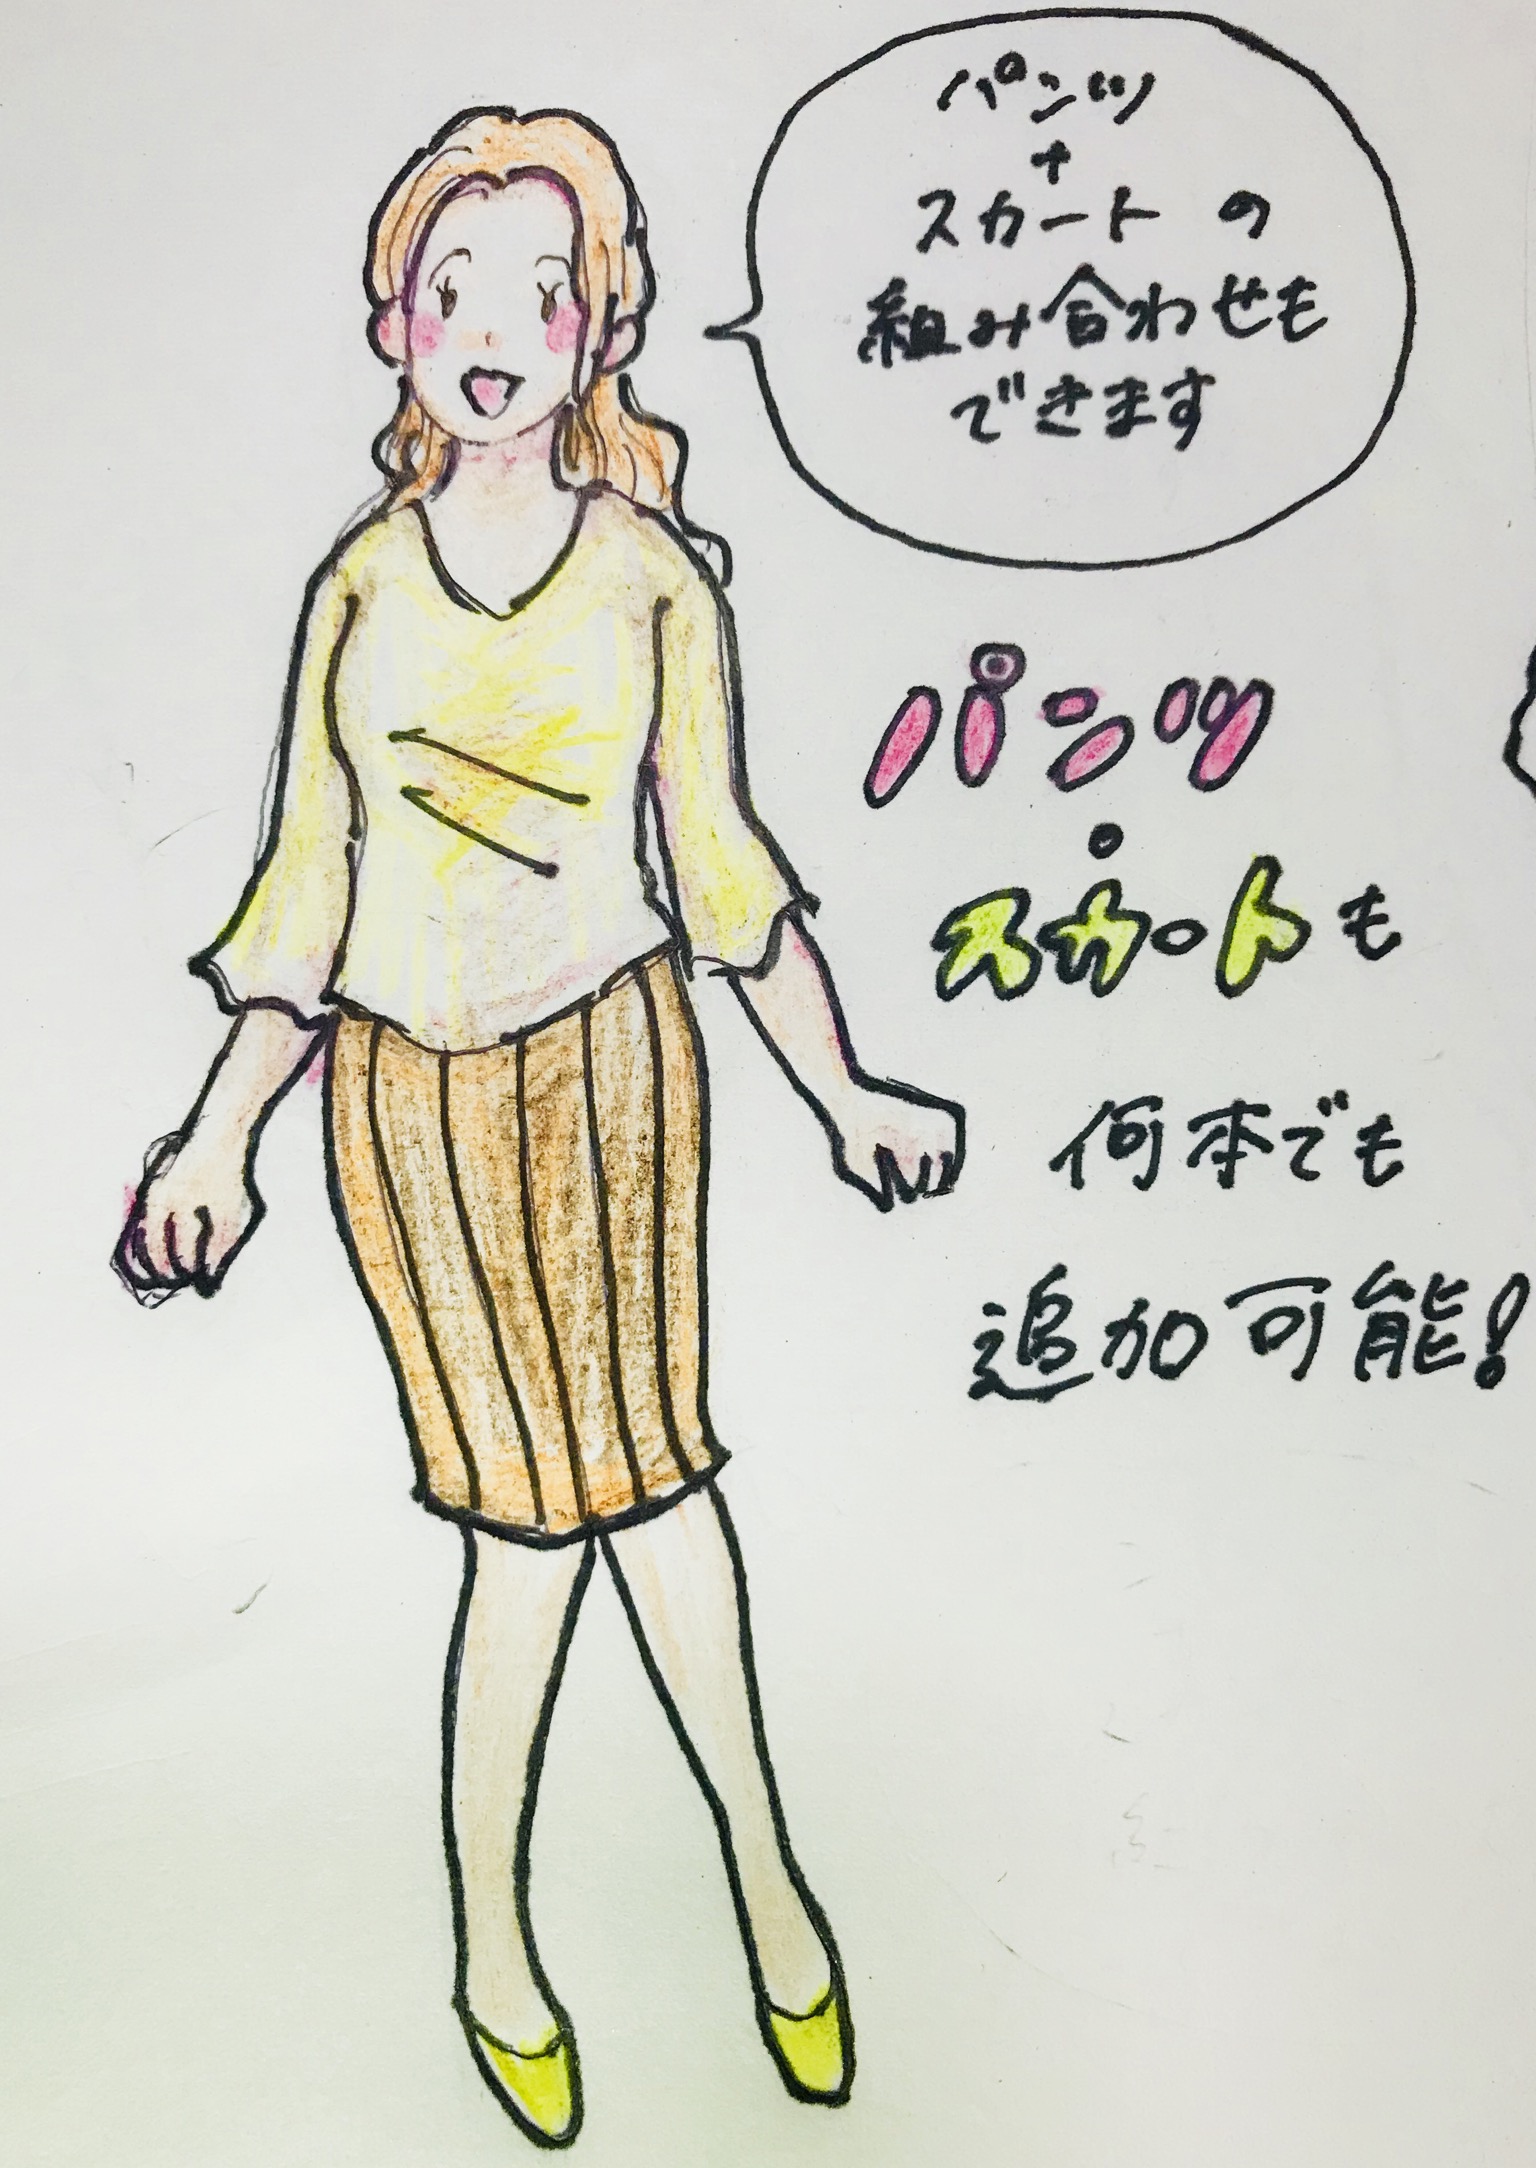 パンツ
+
スカートの
組み合わせも
できます
パンツ
・
スカートも
何本でも
追加可能!